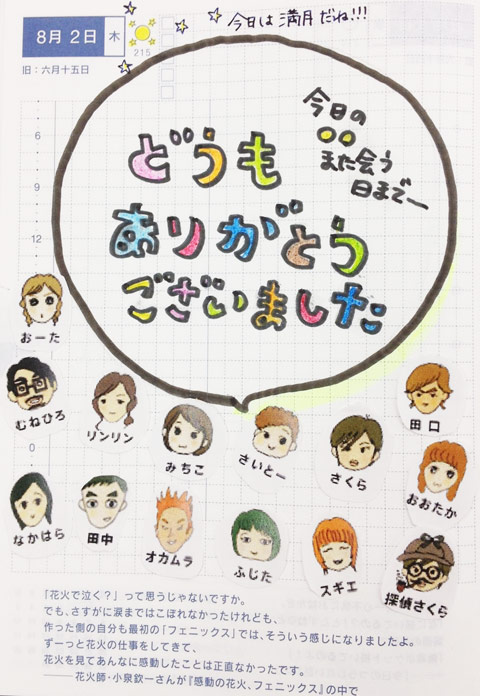 今日は満月だね!!!
8月2日 木
215
旧：六月十五日
今日の
〇〇
また会う
日までー
どうも
ありがとう
ございました
6
9
12
おーた
むねひろ
リンリン
みちこ
さいとー
さくら
田口
おおたか
0
なかはら
田中
オカムラ
ふじた
スギエ
探偵さくら
「花火で泣く？」って思うじゃないですか。
でも、さすがに涙まではこぼれなかったけれども、
作った側の自分も最初の「フェニックス」では、そういう感じになりましたよ。
ずーっと花火の仕事をしてきて、
花火を見てあんなに感動したことは正直なかったです。
――花火師・小泉欽一さんが『感動の花火、フェニックス』の中で